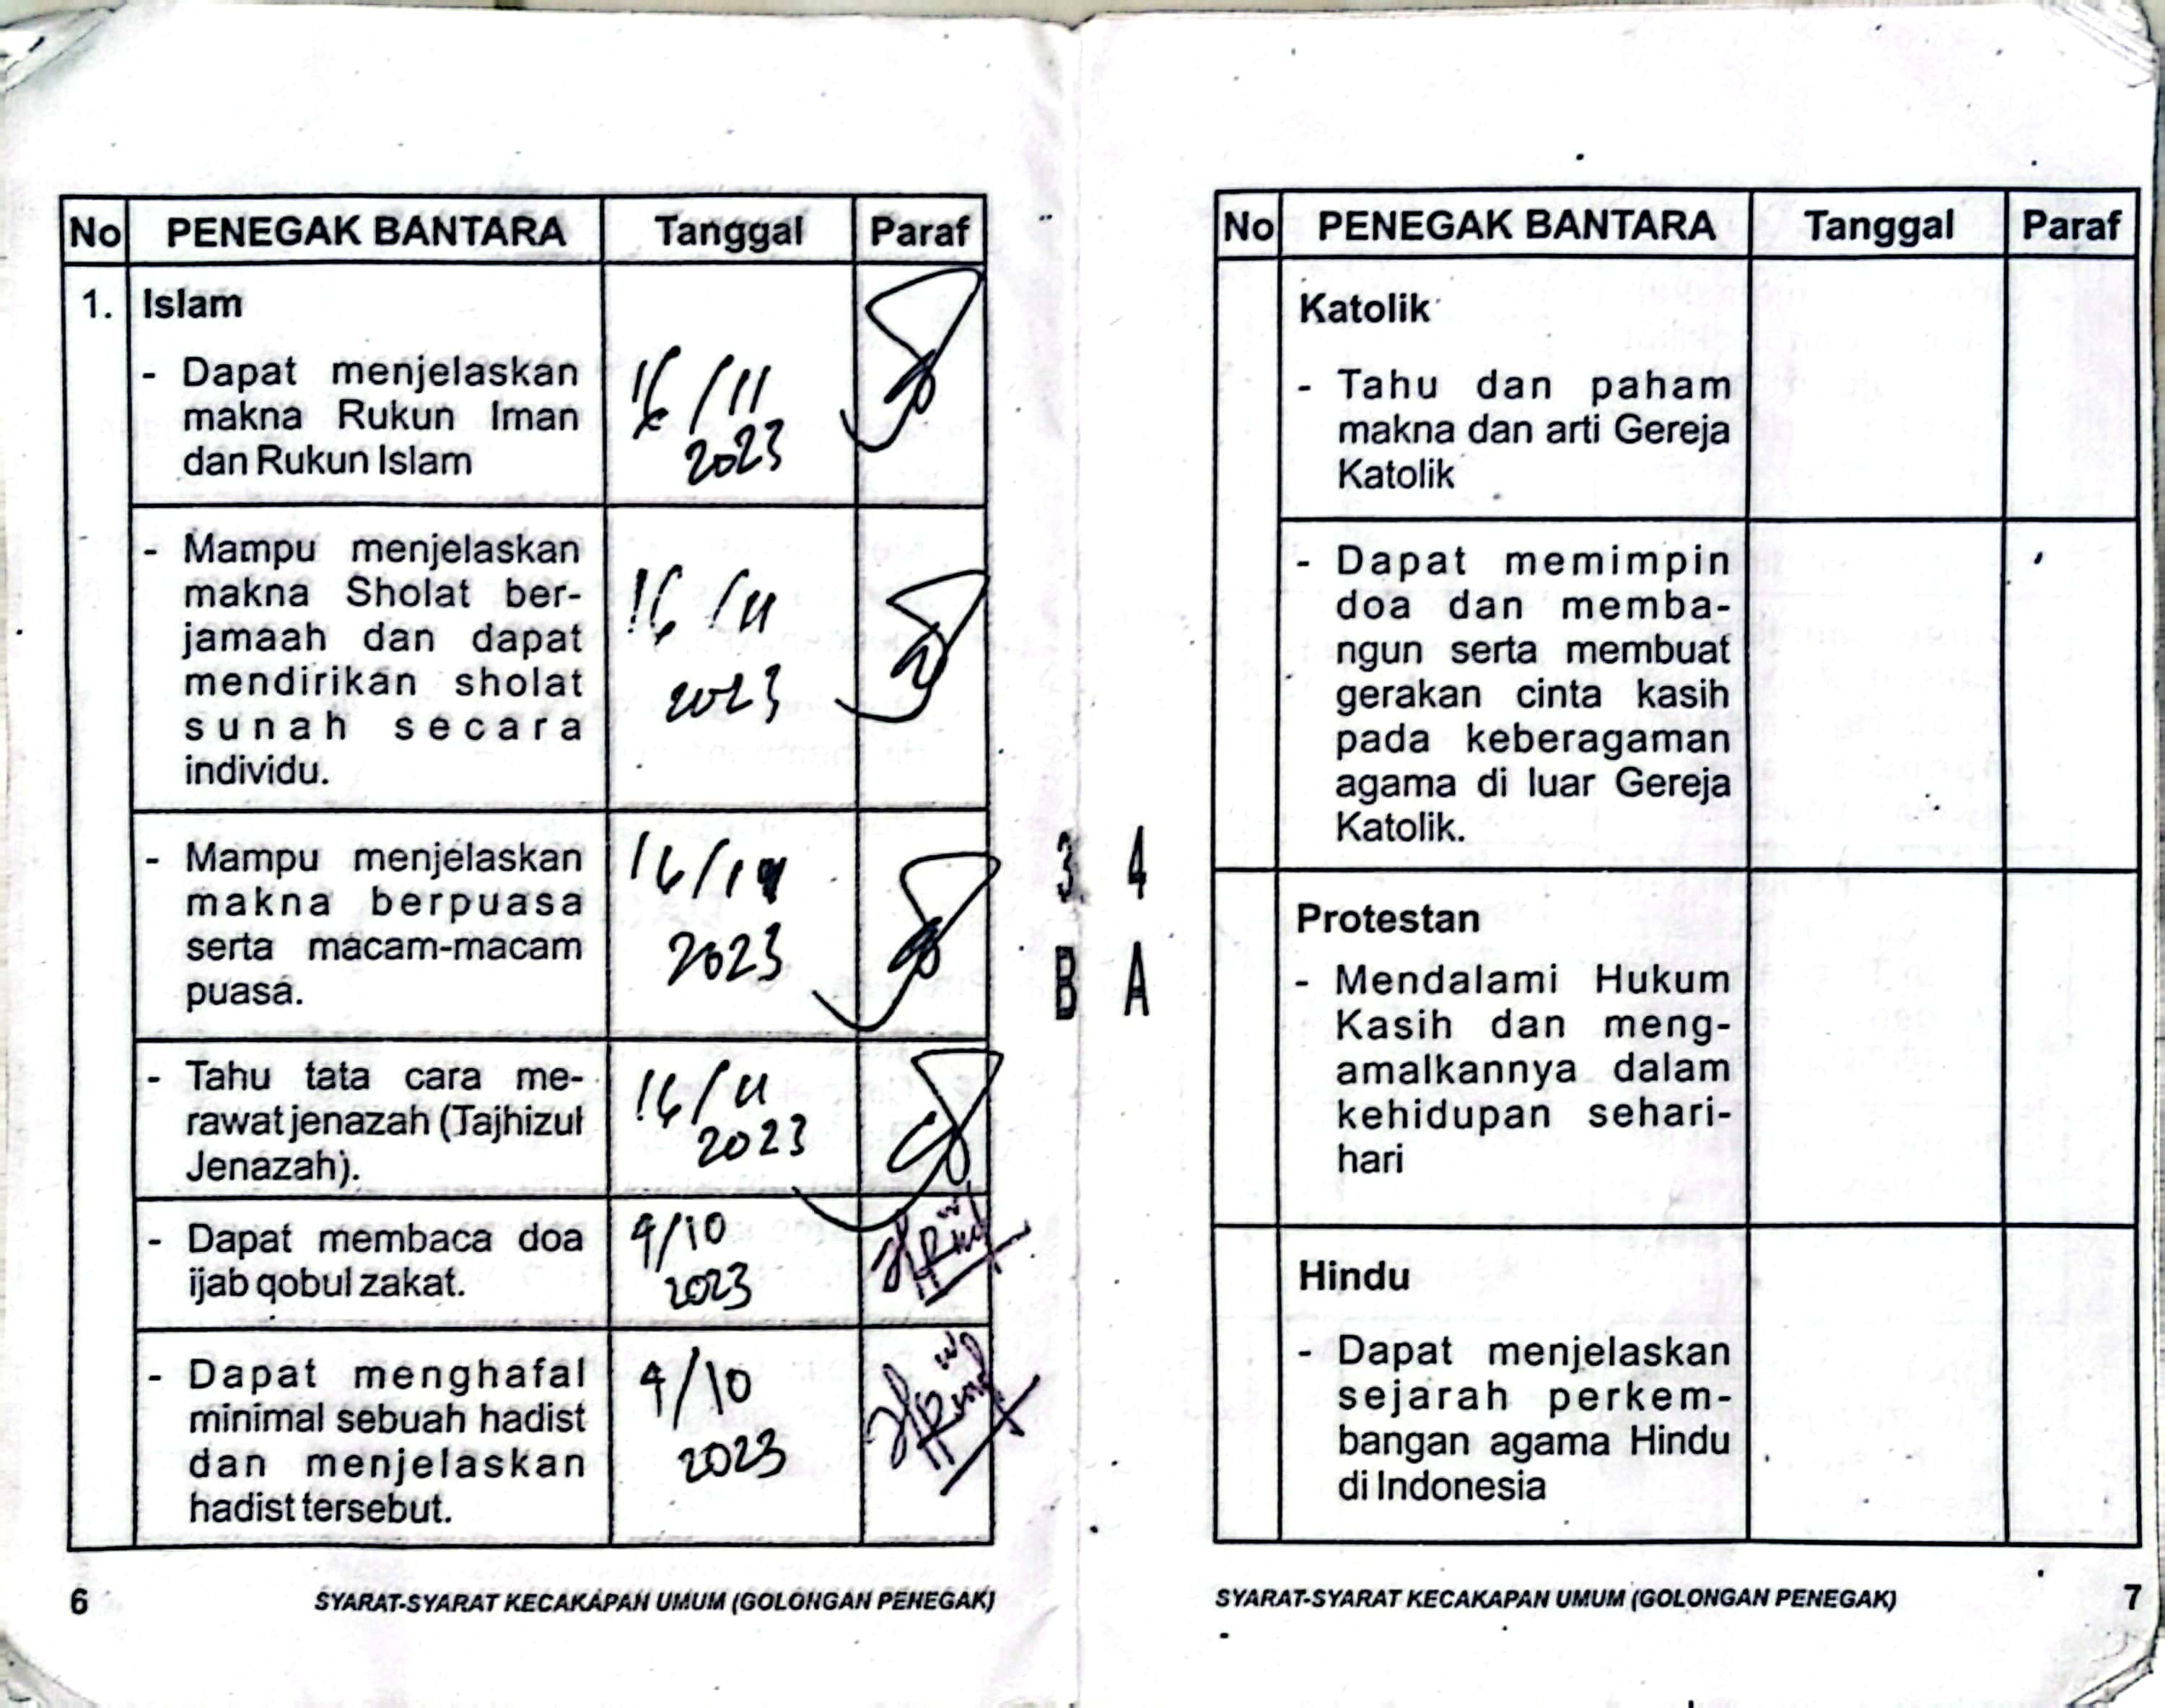 No PENEGAK BANTARA Tanggal Paraf
1. Islam
- Dapat menjelaskan
makna Rukun Iman
dan Rukun Islam
16/11
2023
- Mampu menjelaskan
makna Sholat ber-
jamaah dan dapat
mendirikan sholat
sunah secara
individu.
16/11
2023
- Mampu menjelaskan
makna berpuasa
serta macam-macam
puasa.
16/11
2023
- Tahu tata cara me-
rawat jenazah (Tajhizul
Jenazah).
16/11
2023
- Dapat membaca doa
ijab qobul zakat.
9/10
2023
- Dapat menghafal
minimal sebuah hadist
dan menjelaskan
hadist tersebut.
9/10
2023
6 SYARAT-SYARAT KECAKAPAN UMUM (GOLONGAN PENEGAK)
3 4
B A
No PENEGAK BANTARA Tanggal Paraf
Katolik
- Tahu dan paham
makna dan arti Gereja
Katolik
- Dapat memimpin
doa dan memba-
ngun serta membuat
gerakan cinta kasih
pada keberagaman
agama di luar Gereja
Katolik.
Protestan
- Mendalami Hukum
Kasih dan meng-
amalkannya dalam
kehidupan sehari-
hari
Hindu
- Dapat menjelaskan
sejarah perkem-
bangan agama Hindu
di Indonesia
SYARAT-SYARAT KECAKAPAN UMUM (GOLONGAN PENEGAK) 7